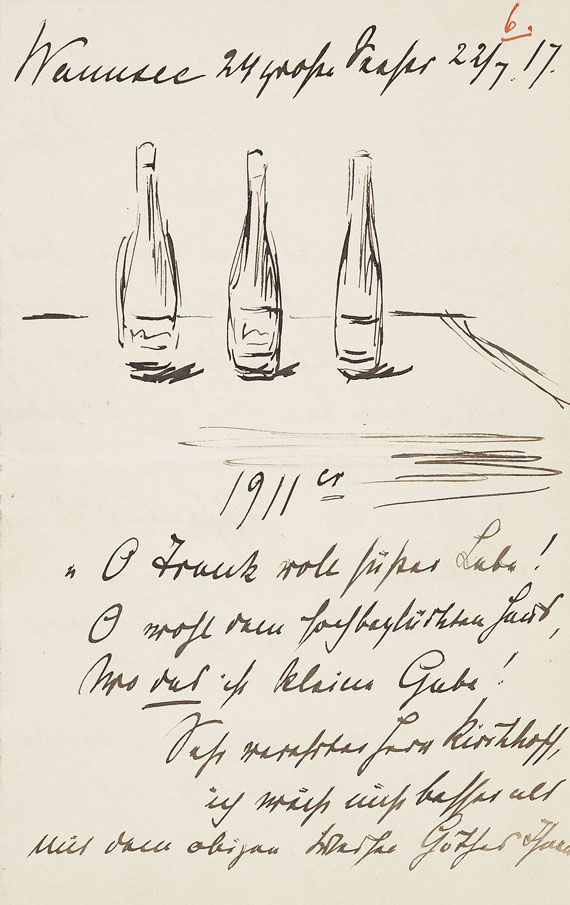 6.
Wannsee 24 große Seestr 22/7. 17.
1911er
„ O Trank voll süßer Labe!
O wohl dem hochbeglückten Haus,
Wo das ist kleine Gabe!
Sehr verehrter Herr Kirchhoff,
ich weiß nicht besser als
mit dem obigen Verse Göthes